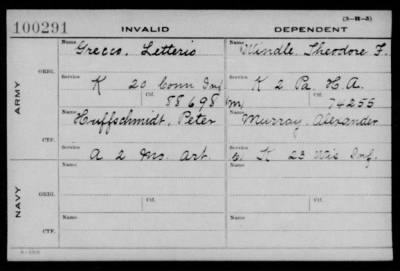 (3-H-5)
100291 INVALID DEPENDENT
Name Name
Grecco, Letterio Windle, Theodore F.
ORIG.
Service Ctf. Service Ctf.
K 20 Conn Inf K 2 Pa. H.A.
ARMY
88698 (m) 74255
Name Name
Huffschmidt, Peter Murray, Alexander
CTF.
Service Service
A 2 Mo. Art. K 23 Wis Inf.
Name Ctf. Name Ctf.
ORIG.
Service Service
NAVY
Name Name
CTF.
Service Service